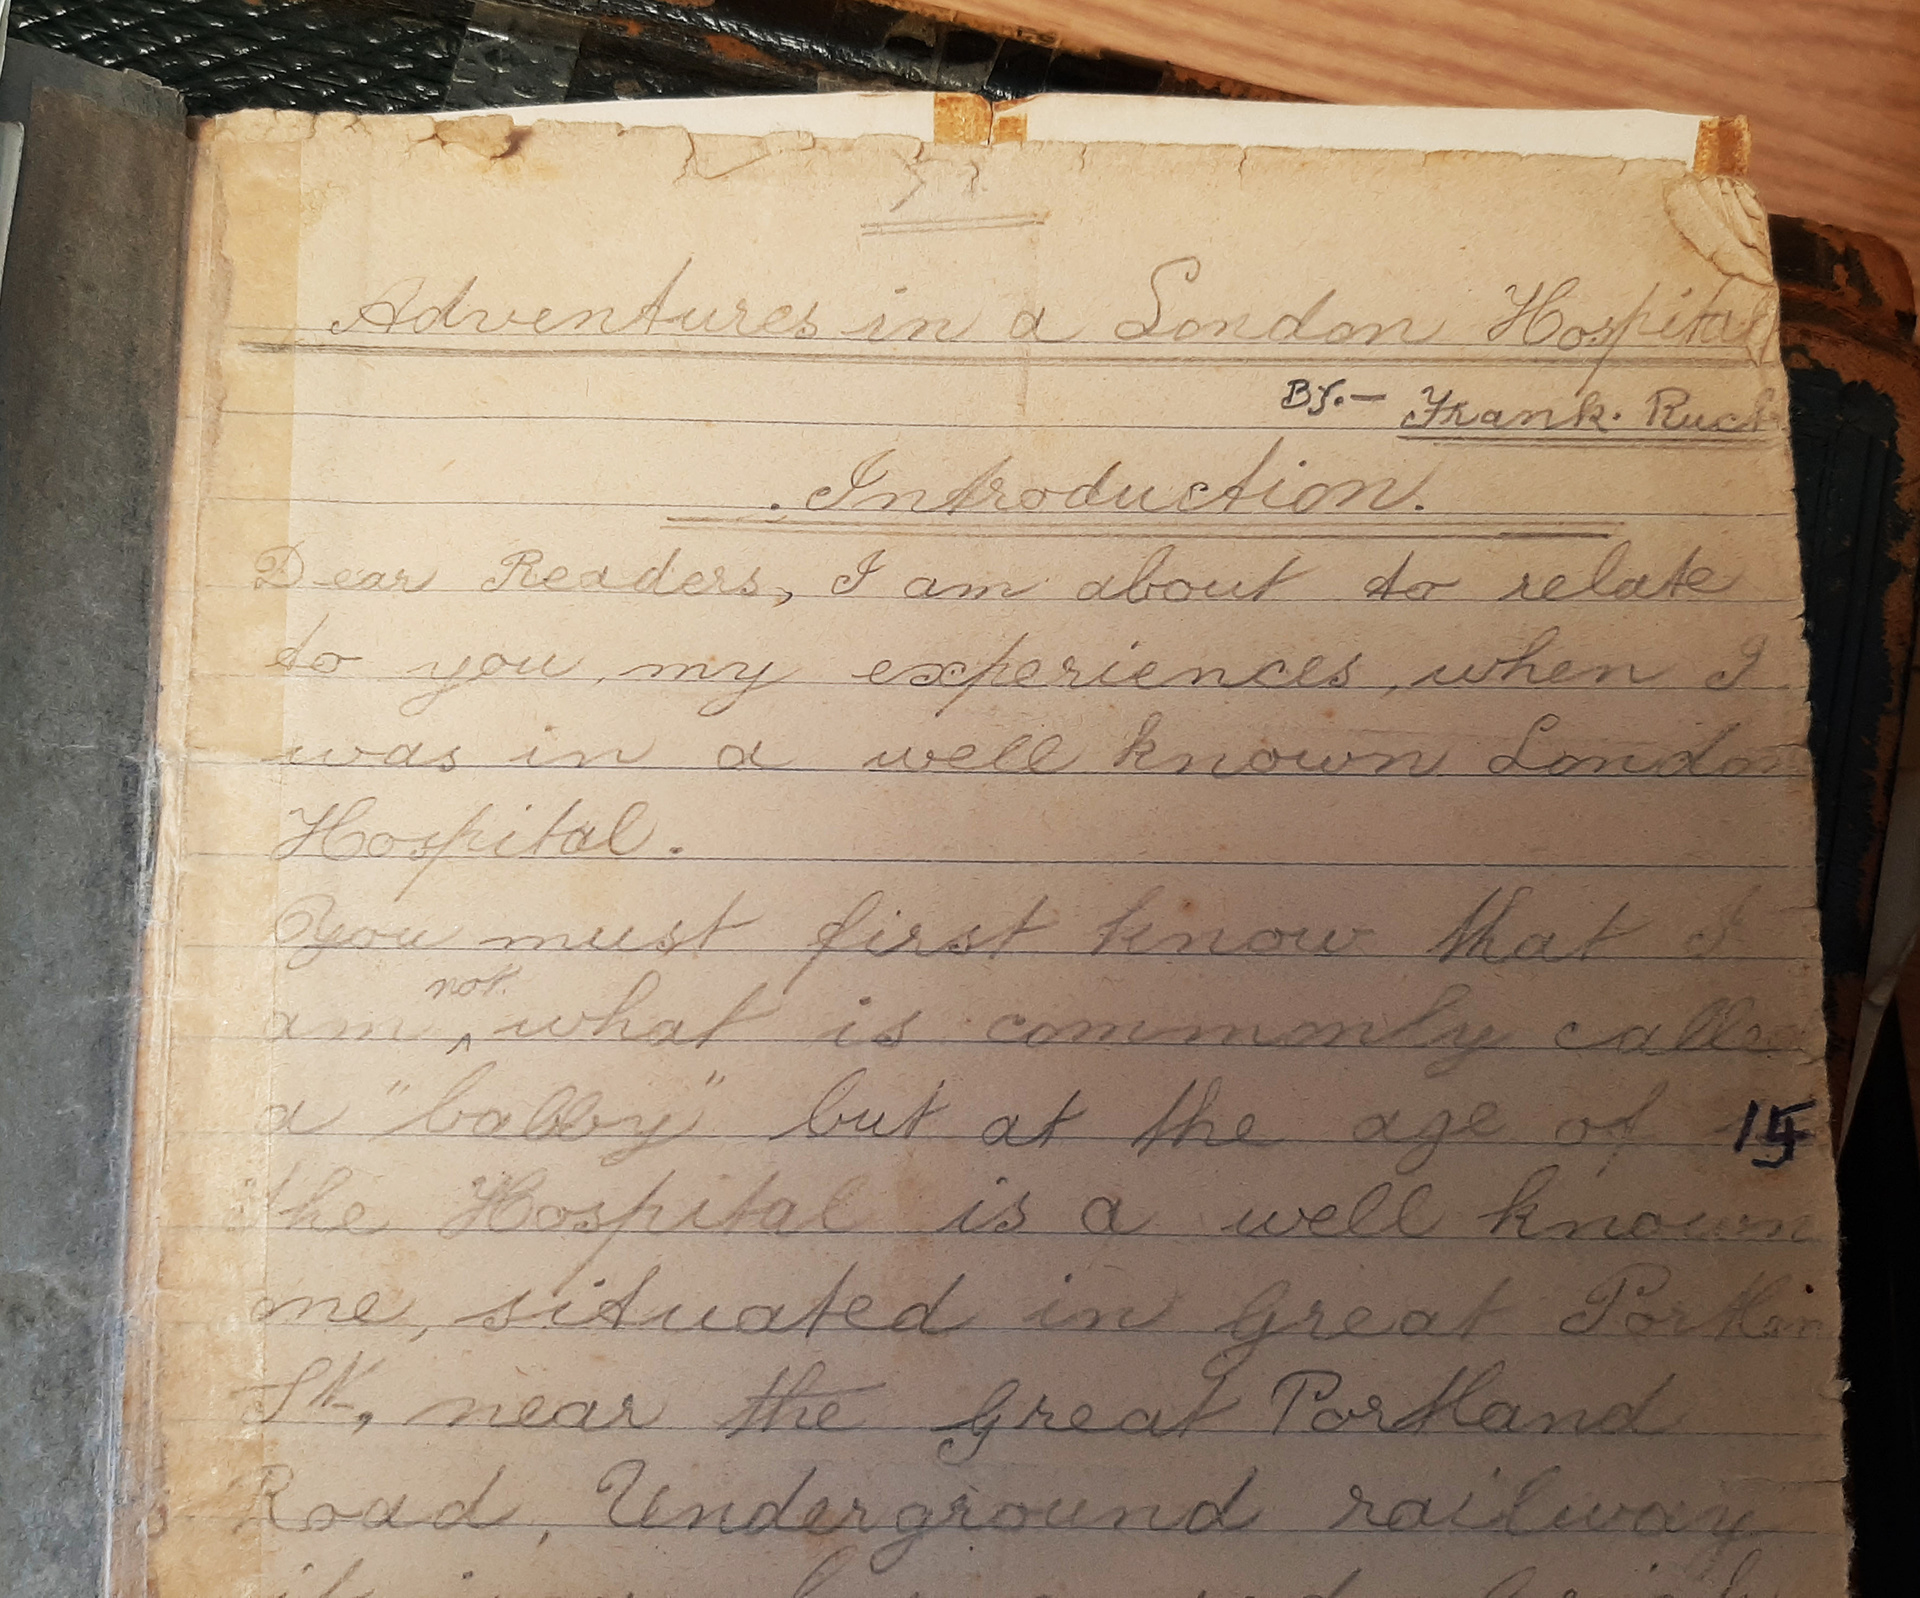 Adventures in a London Hospital
By.— Frank. Ruck
Introduction.
Dear Readers, I am about to relate
to you, my experiences, when I
was in a well known London
Hospital.
You must first know that I
not
am ^ what is commonly called
a "babby" but at the age of 15
the Hospital is a well known
one, situated in Great Portlan
St., near the Great Portland
Road, Underground railway
it is